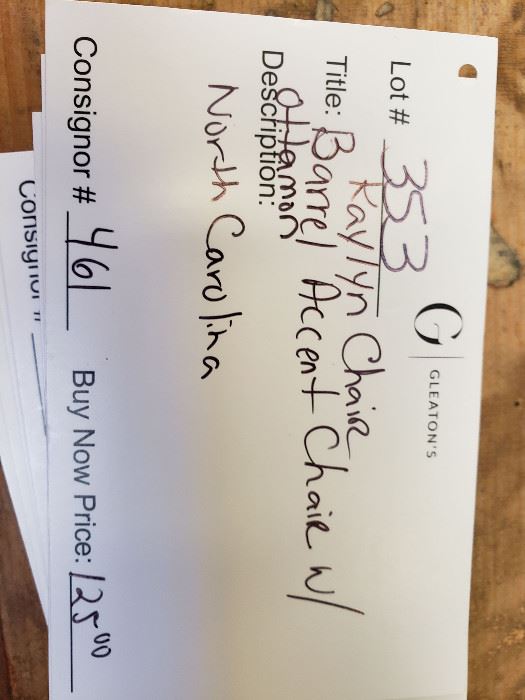 G | GLEATON'S
Lot # 353
Kaylyn Chair
Title: Barrel Accent Chair w/
Ottamon
Description:
North Carolina
Consignor # 461 Buy Now Price: 125.00
Consignor #